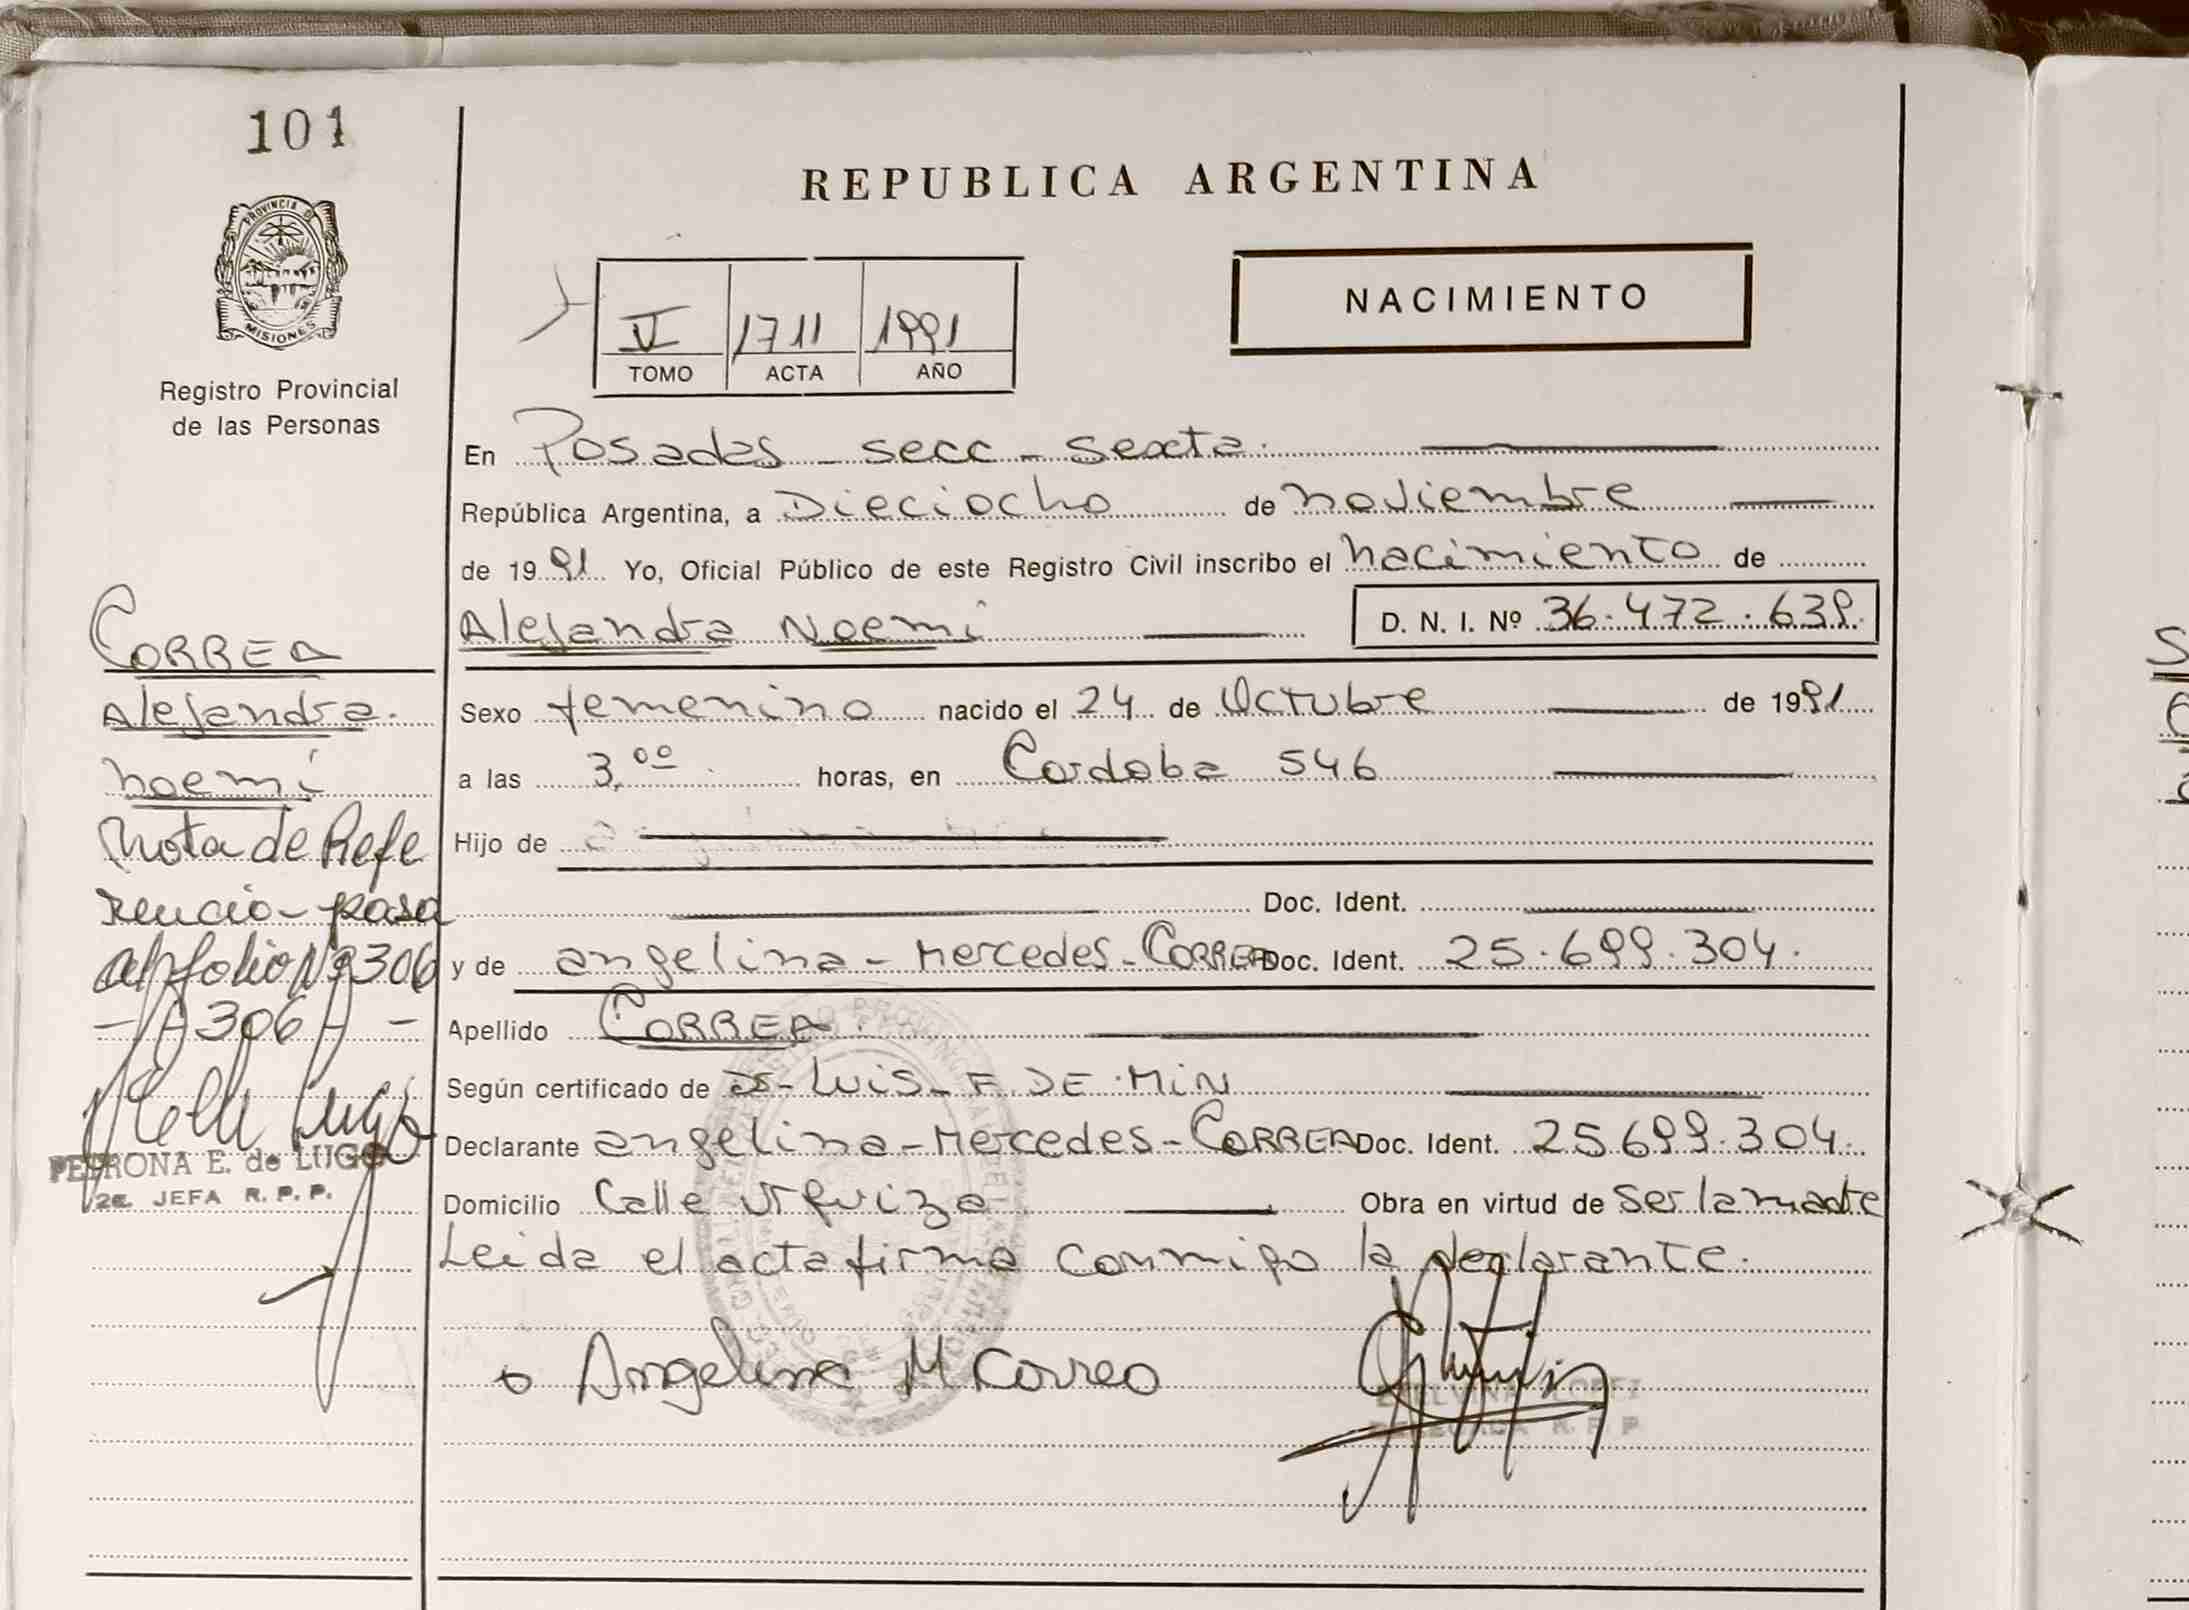 101
PROVINCIA DE
MISIONES
Registro Provincial
de las Personas
REPUBLICA ARGENTINA
V 1711 1991
TOMO ACTA AÑO
NACIMIENTO
En Posadas - secc - sexta.
República Argentina, a Dieciocho de noviembre
de 1991 Yo, Oficial Público de este Registro Civil inscribo el nacimiento de
Alejandra Noemi D. N. I. Nº 36.472.639.
Sexo femenino nacido el 24 de Octubre de 1991
a las 3,00 horas, en Cordoba 546
Hijo de
Doc. Ident.
y de angelina - Mercedes - CORREA Doc. Ident. 25.699.304.
Apellido CORREA.
Según certificado de Dr - LUIS - F. DE MIN
Declarante angelina - Mercedes - CORREA Doc. Ident. 25699.304.
Domicilio Calle Urquiza Obra en virtud de ser la madre
Leida el acta firma conmigo la declarante.
Angelina M Correa
LOPEZ
DELEGADA R. P. P.
CORREA
Alejandra.
noemi
Nota de Refe
rencia - pasa
al folio Nº 306
- A 306 A -
PETRONA E. de LUGO
2a. JEFA R. P. P.